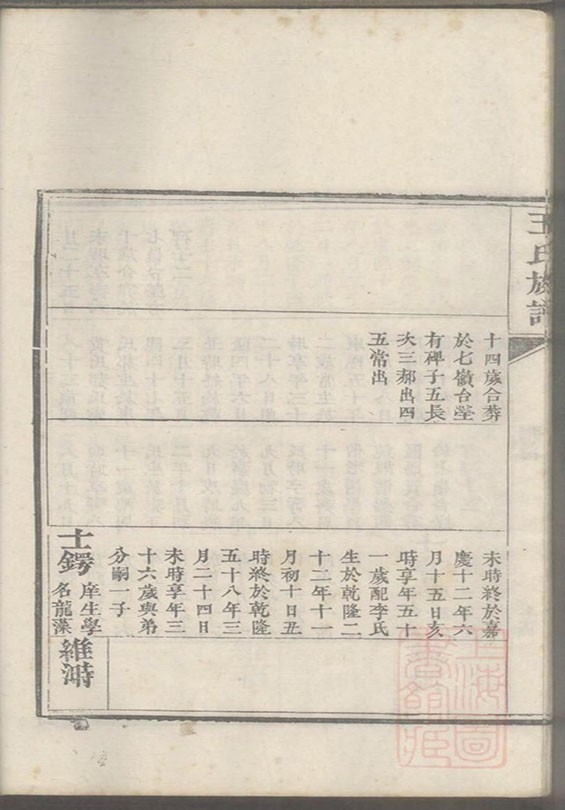 王氏族譜
十四歲合葬
於七嶺台塋
有碑子五長
次三郝出四
五常出
未時終於嘉
慶十二年六
月十五日亥
時享年五十
一歲配李氏
生於乾隆二
十二年十一
月初十日丑
時終於乾隆
五十八年三
月二十四日
未時享年三
十六歲與弟
分嗣一子
士鍔
庠生學
名龍藻
維澍
上海圖
書館藏